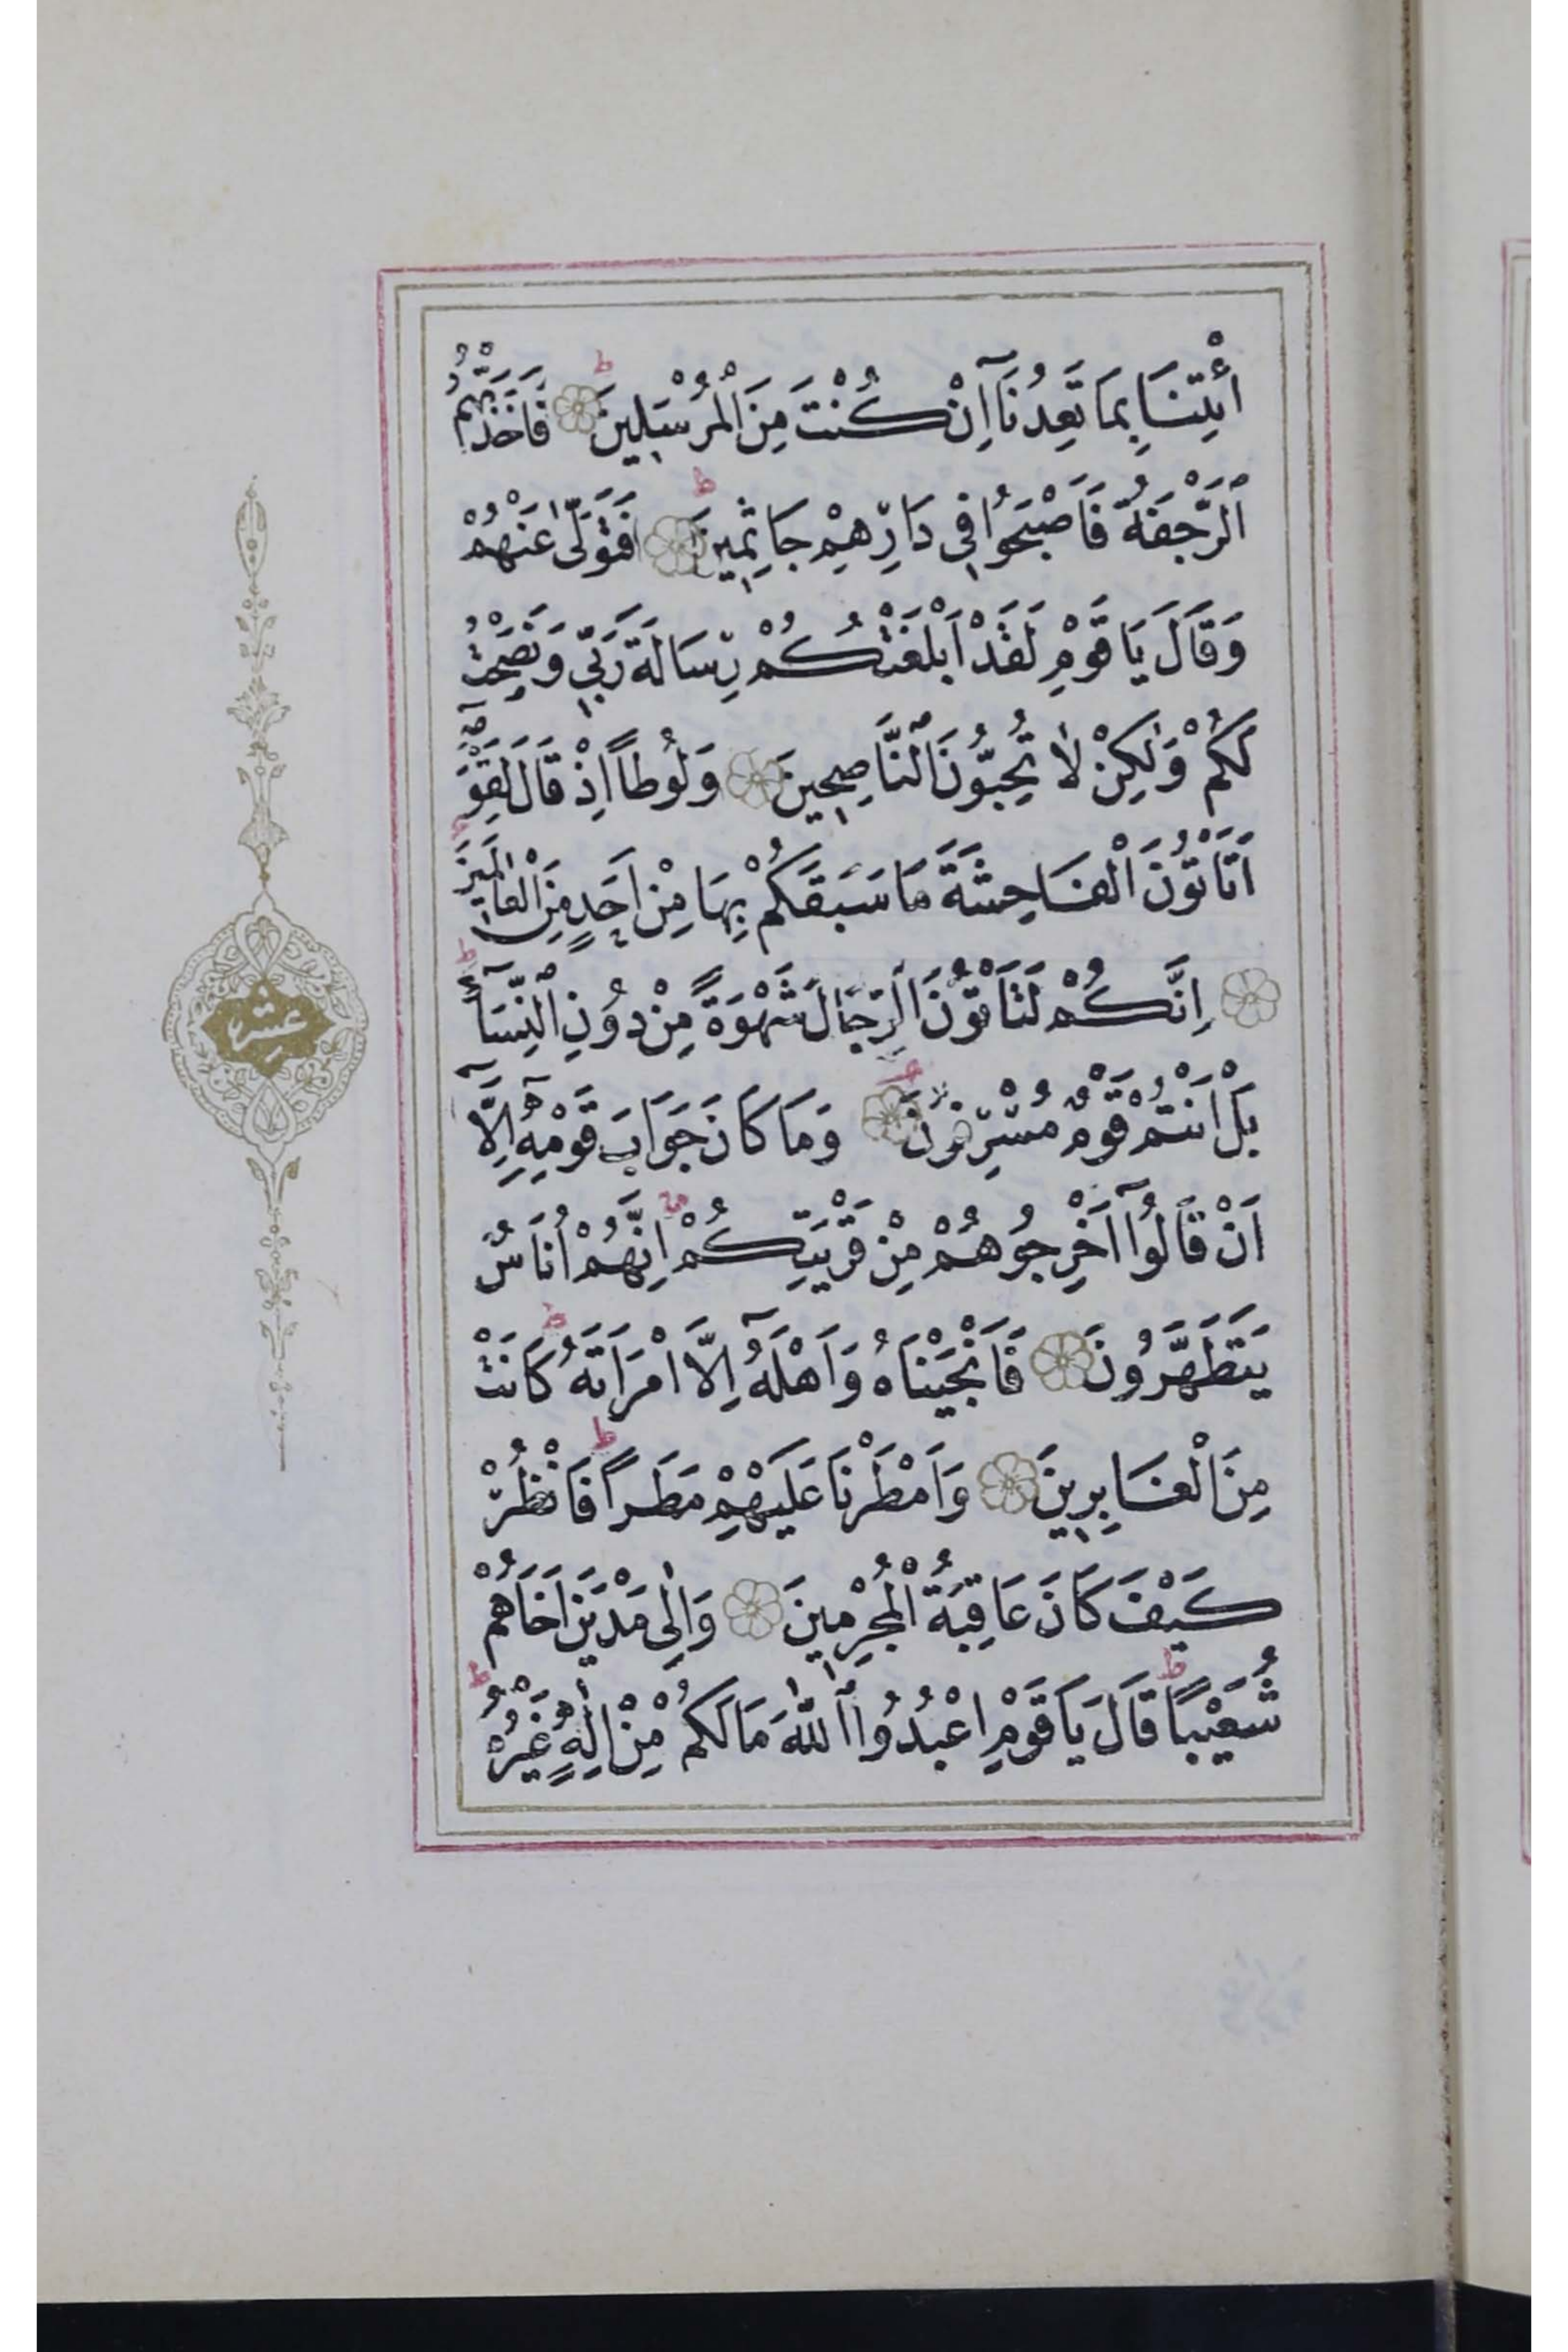 ائْتِنَا بِمَا تَعِدُنَآ اِنْ كُنْتَ مِنَ الْمُرْسَلِينَ ط فَاَخَذَتْهُمُ
الرَّجْفَةُ فَاَصْبَحُوا فِي دَارِهِمْ جَاثِمِينَ ط فَتَوَلّٰى عَنْهُمْ
وَقَالَ يَا قَوْمِ لَقَدْ اَبْلَغْتُكُمْ رِسَالَةَ رَبِّي وَنَصَحْتُ
لَكُمْ وَلٰكِنْ لَا تُحِبُّونَ النَّاصِحِينَ وَلُوطاً اِذْ قَالَ لِقَوْمِهٓ
اَتَاْتُونَ الْفَاحِشَةَ مَا سَبَقَكُمْ بِهَا مِنْ اَحَدٍ مِنَ الْعَالَمِينَ
اِنَّكُمْ لَتَاْتُونَ الرِّجَالَ شَهْوَةً مِنْ دُونِ النِّسَآءِ ط
بَلْ اَنْتُمْ قَوْمٌ مُسْرِفُونَ وَمَا كَانَ جَوَابَ قَوْمِهٓ اِلَّآ
اَنْ قَالُوٓا اَخْرِجُوهُمْ مِنْ قَرْيَتِكُمْ اِنَّهُمْ اُنَاسٌ
يَتَطَهَّرُونَ فَاَنْجَيْنَاهُ وَاَهْلَهُٓ اِلَّا امْرَاَتَهُ ط كَانَتْ
مِنَ الْغَابِرِينَ وَاَمْطَرْنَا عَلَيْهِمْ مَطَراً ط فَانْظُرْ
كَيْفَ كَانَ عَاقِبَةُ الْمُجْرِمِينَ وَاِلٰى مَدْيَنَ اَخَاهُمْ
شُعَيْباً ط قَالَ يَا قَوْمِ اعْبُدُوا اللّٰهَ مَا لَكُمْ مِنْ اِلٰهٍ غَيْرُهُ ط
عشر